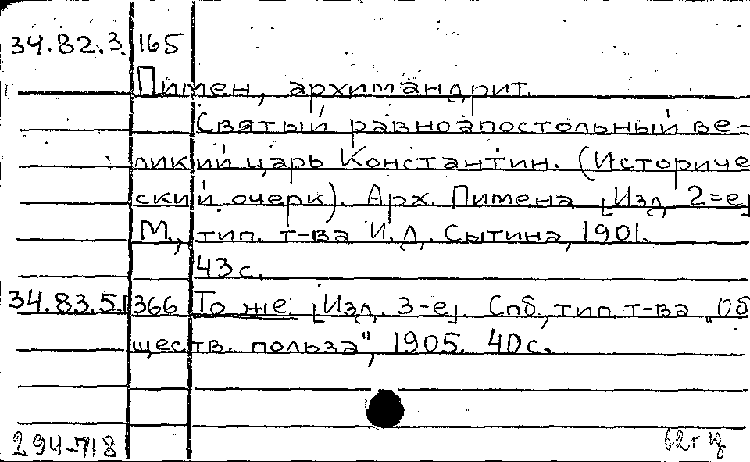 34.82.3. 165
Пимен, архимандрит.
Святый равноапостольный ве-
ликий царь Константин. (Историче
ский очерк). Арх. Пимена [Изд. 2-е]
М., тип. т-ва И.Д. Сытина, 1901.
43с.
34.83.5. 366 То же [Изд. 3-е]. Спб., тип. т-ва „Об
ществ. польза", 1905. 40с.
294-718
62г